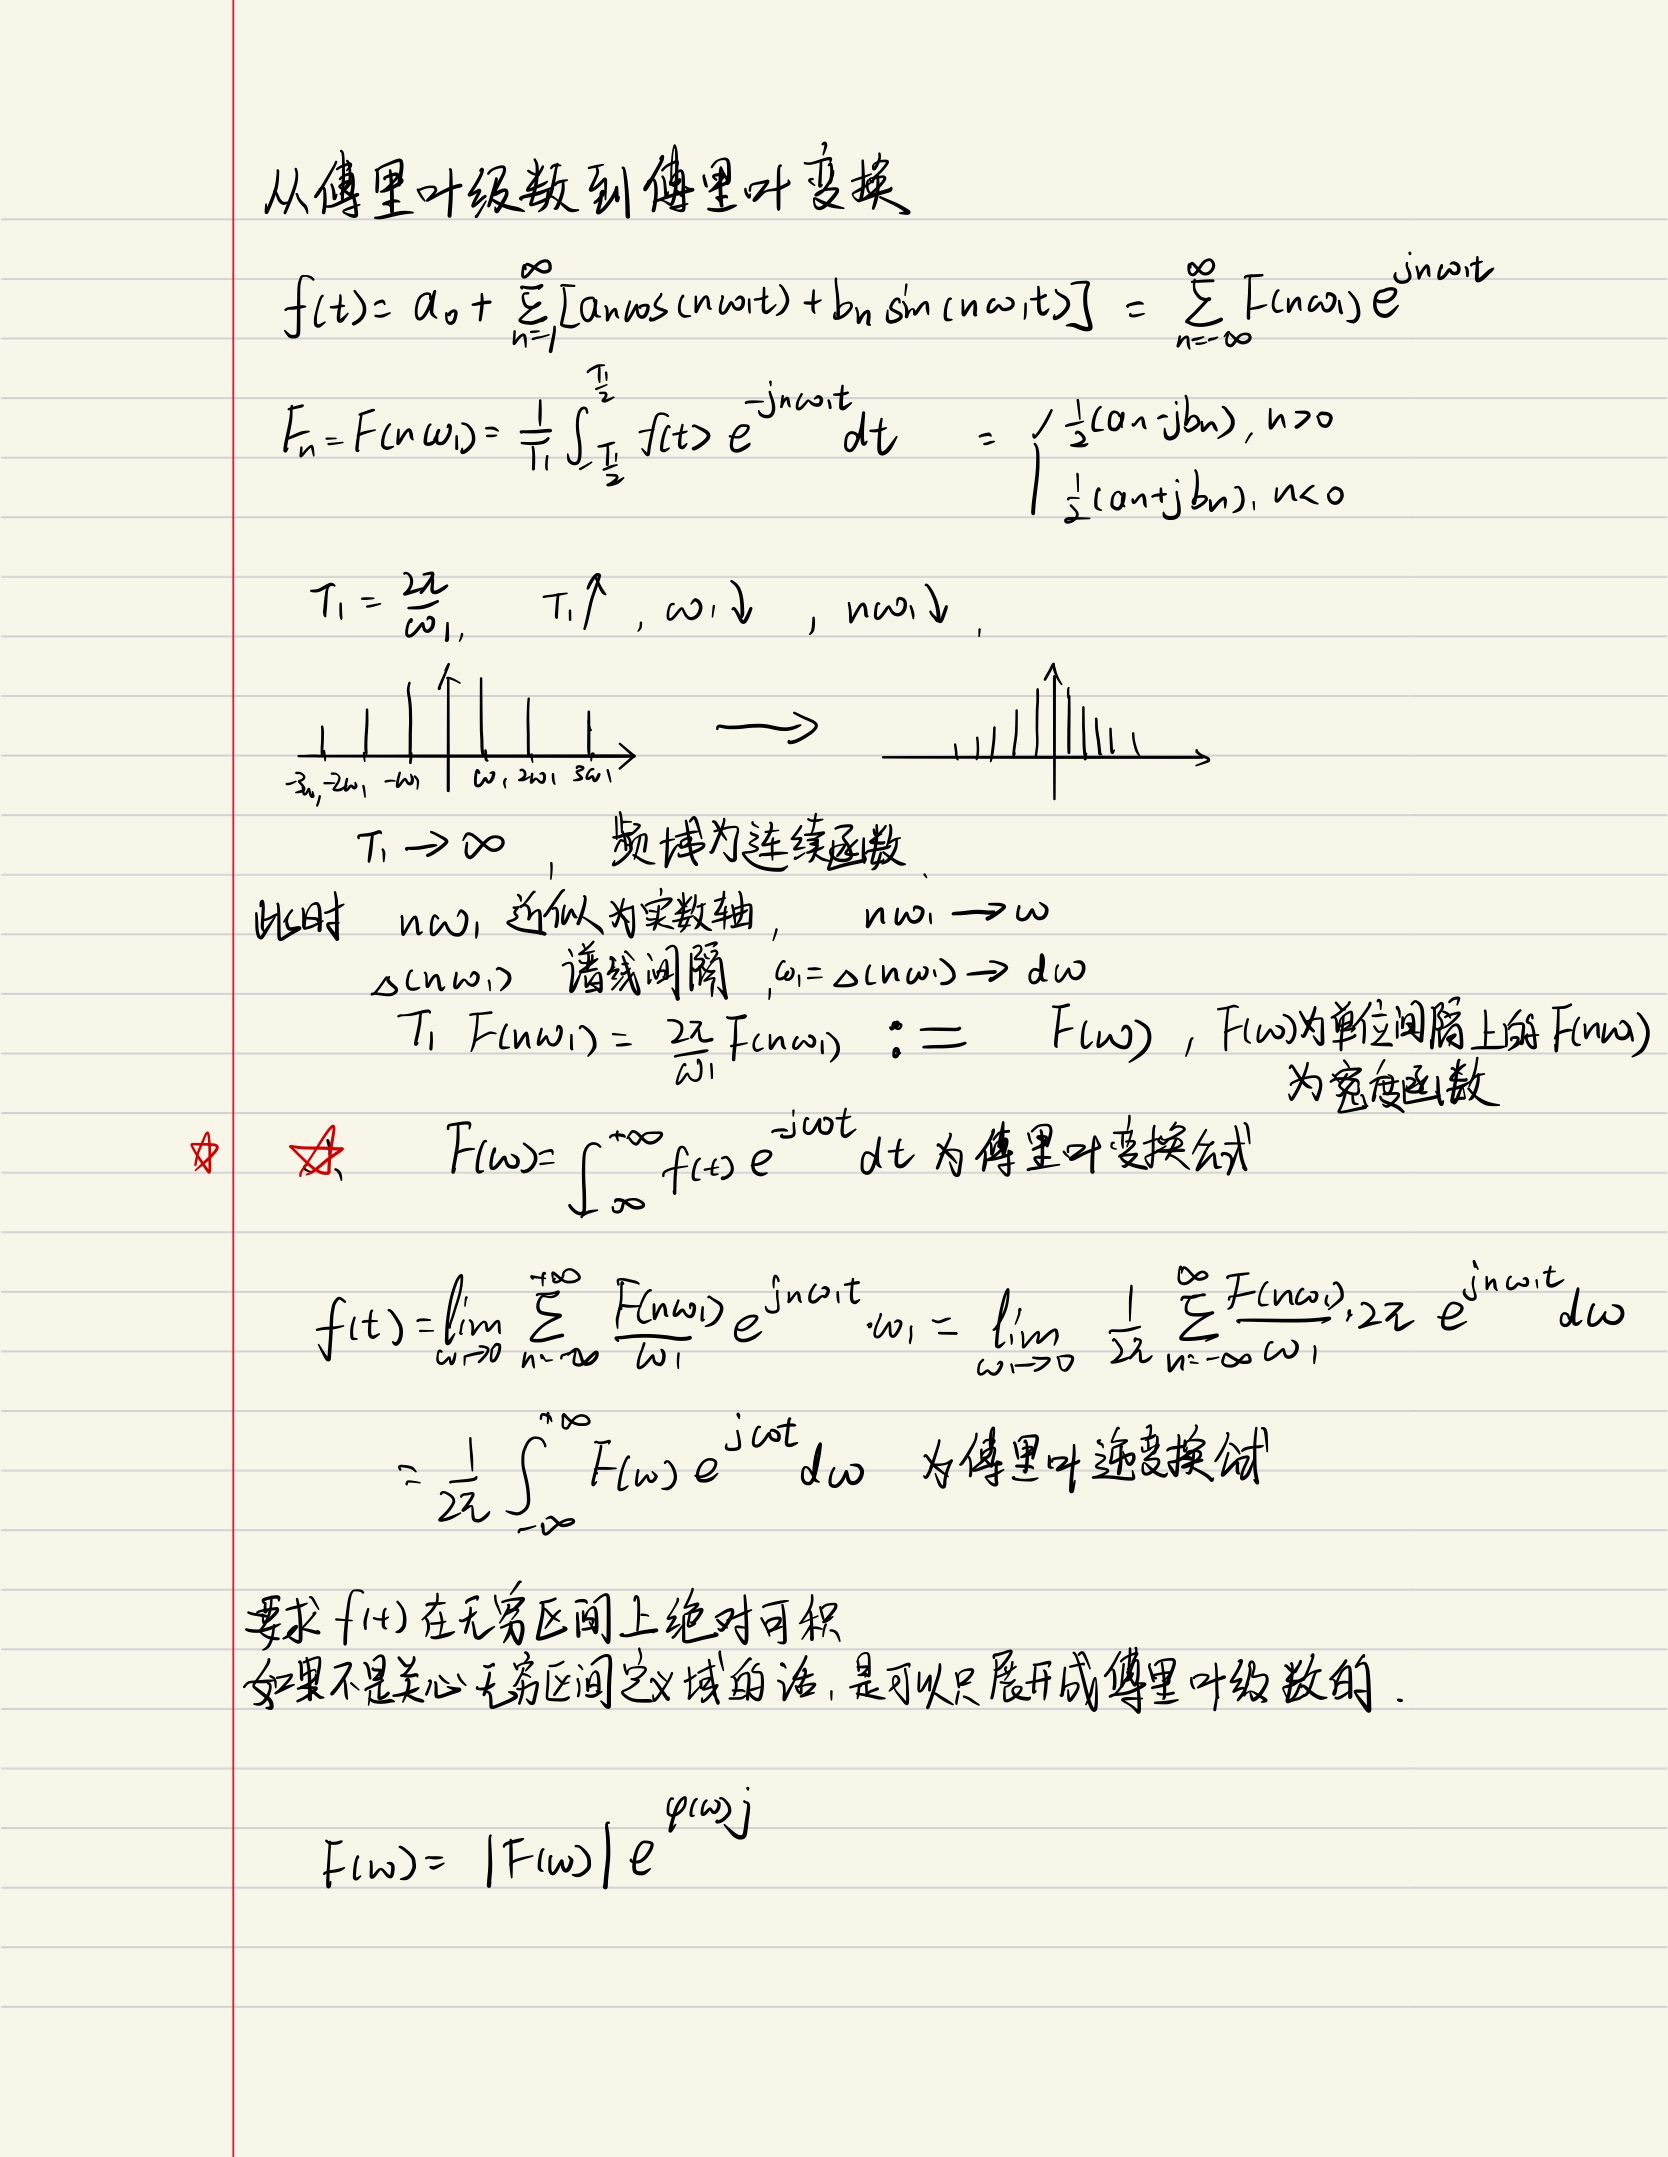 从傅里叶级数到傅里叶变换
f(t) = a₀ + ∑_{n=1}^{∞} [aₙcos(nω₁t) + bₙ sin(nω₁t)] = ∑_{n=-∞}^{∞} F(nω₁) e^{jnω₁t}
Fₙ = F(nω₁) = 1/T₁ ∫_{-T₁/2}^{T₁/2} f(t) e^{-jnω₁t} dt = { ½(aₙ-jbₙ), n>0
½(aₙ+jbₙ), n<0
T₁ = 2π/ω₁, T₁↑, ω₁↓, nω₁↓,
-3ω₁ -2ω₁ -ω₁ ω₁ 2ω₁ 3ω₁ →
T₁ → ∞, 频域为连续函数.
此时 nω₁ 近似为实数轴, nω₁ → ω
△(nω₁) 谱线间隔, ω₁ = △(nω₁) → dω
T₁ F(nω₁) = 2π/ω₁ F(nω₁) := F(ω), F(ω)为单位间隔上的F(nω₁)
为密度函数
☆ ☆ F(ω) = ∫_{-∞}^{+∞} f(t) e^{-jωt} dt 为傅里叶变换公式
f(t) = lim_{ω₁→0} ∑_{n=-∞}^{+∞} F(nω₁)/ω₁ e^{jnω₁t}·ω₁ = lim_{ω₁→0} 1/2π ∑_{n=-∞}^{∞} F(nω₁)/ω₁·2π e^{jnω₁t} dω
= 1/2π ∫_{-∞}^{+∞} F(ω) e^{jωt} dω 为傅里叶逆变换公式
要求f(t)在无穷区间上绝对可积
如果不是关心无穷区间定义域的话,是可以只展开成傅里叶级数的.
F(ω) = |F(ω)| e^{φ(ω)j}